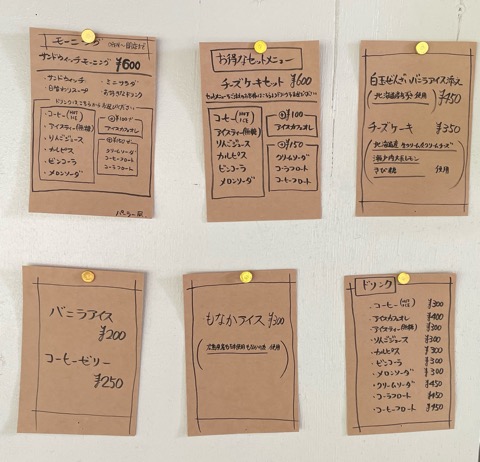 モーニング
サンドウィッチモーニング ¥600
・サンドウィッチ ・ミニサラダ
・日替わりスープ ・お好きなドリンク
ドリンクはこちらからお選びください
・コーヒー(HOT ICE)
・アイスティー(無糖)
・りんごジュース
・カルピス
・ビンコーラ
・メロンソーダ
¥100
アイスカフェオレ
¥150
クリームソーダ
コーヒーフロート
コーラフロート
お得なセットメニュー
チーズケーキセット ¥600
・コーヒー(HOT ICE)
・アイスティー(無糖)
・りんごジュース
・カルピス
・ビンコーラ
・メロンソーダ
¥100
アイスカフェオレ
¥150
クリームソーダ
コーラフロート
コーヒーフロート
白玉ぜんざいバニラアイス添え
(北海道産あずき使用) ¥450
チーズケーキ ¥350
北海道産 生クリーム&クリームチーズ
瀬戸内大長レモン
きび糖 使用
バニラアイス
¥200
コーヒーゼリー
¥250
もなかアイス ¥300
ドリンク
・コーヒー(HOT ICE) ¥300
・アイスカフェオレ ¥400
・アイスティー(無糖) ¥300
・りんごジュース ¥300
・カルピス ¥300
・ビンコーラ ¥300
・メロンソーダ ¥300
・クリームソーダ ¥450
・コーラフロート ¥450
・コーヒーフロート ¥450